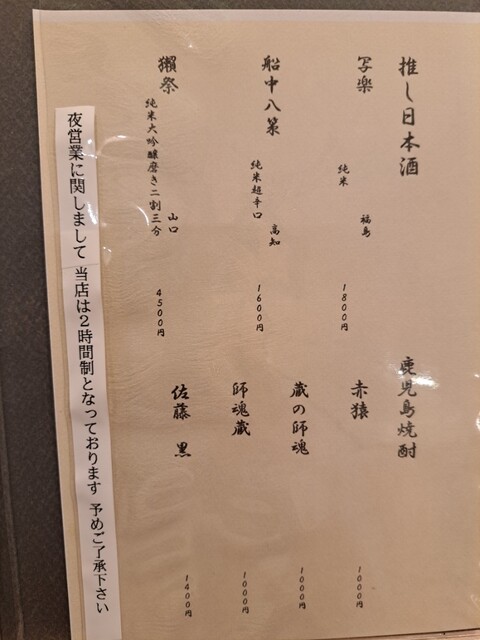 推し日本酒
写楽
純米
福島
1800円
船中八策
純米超辛口
高知
1600円
獺祭
純米大吟醸磨き二割三分
山口
4500円
鹿児島焼酎
赤猿
1000円
蔵の師魂
1000円
師魂蔵
1000円
佐藤 黒
1400円
夜営業に関しまして 当店は2時間制となっております 予めご了承下さい